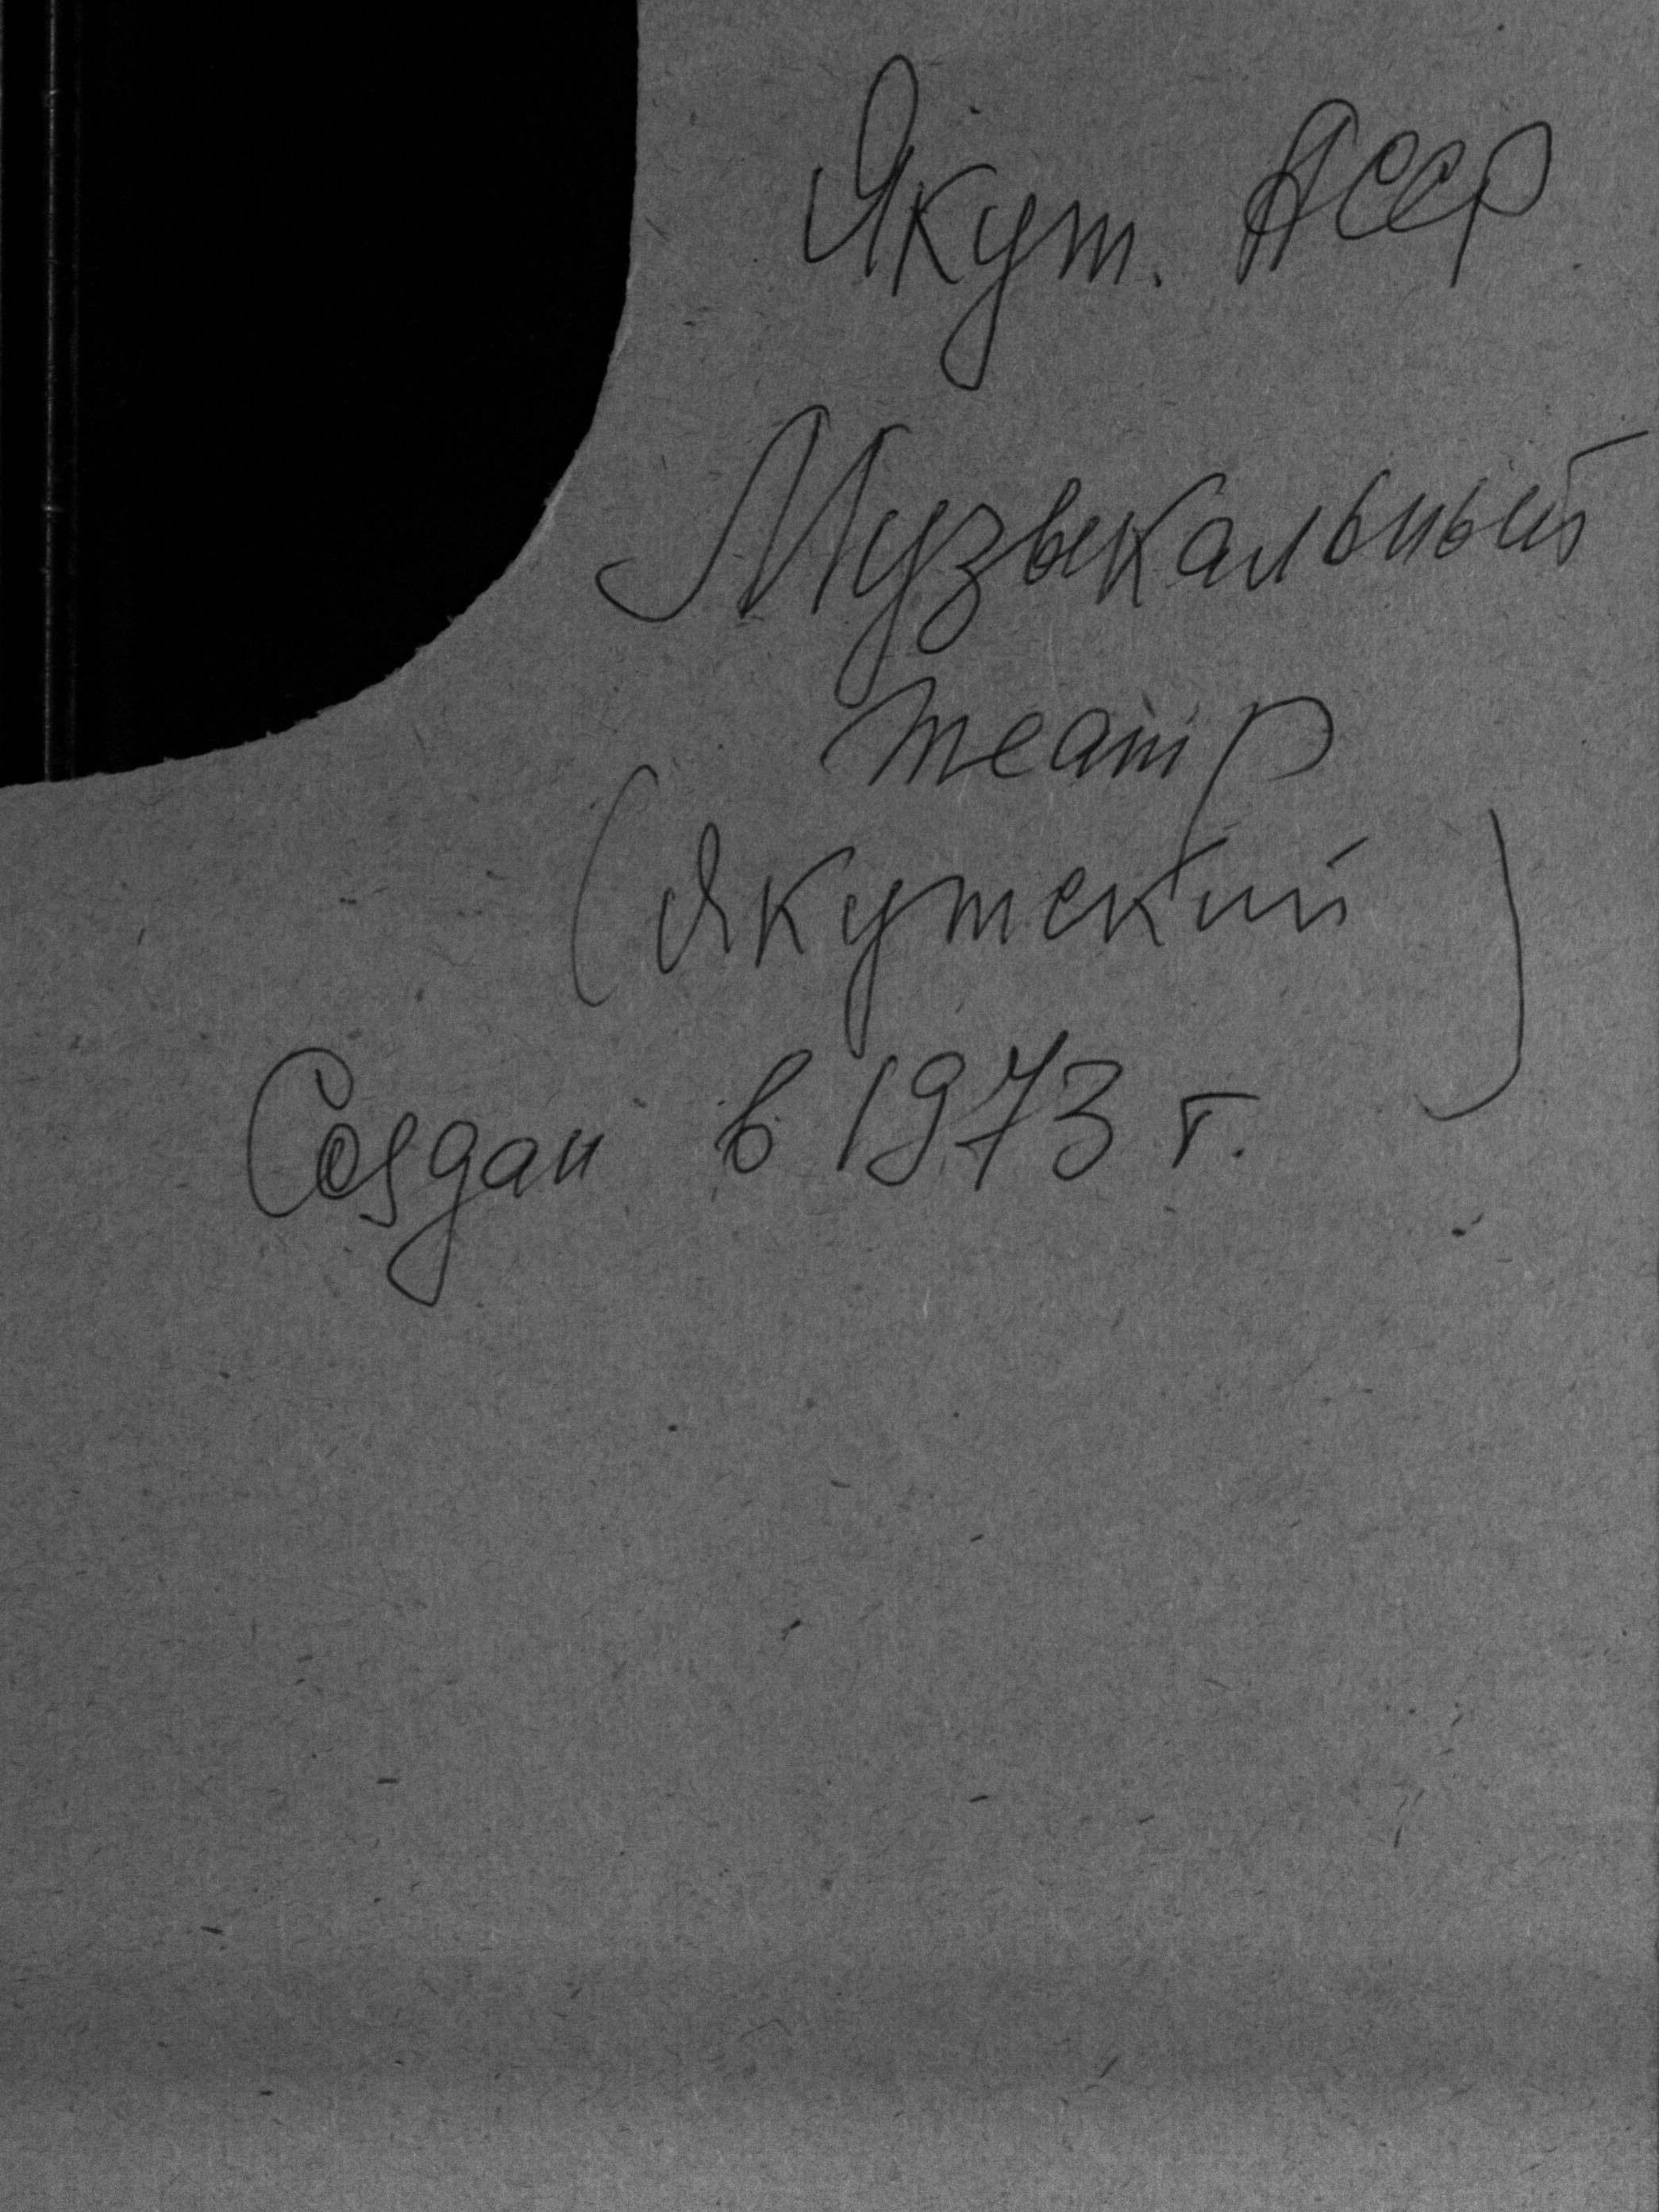 Якут. АССР
Музыкальный
театр
(Якутский)
Создан в 1973 г.